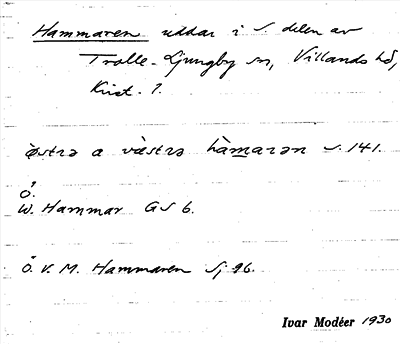 Hammaren uddar i S. delen av
Trolle-Ljungby sn, Villands hd,
Krist. l.
östrə a västrə hàmarən s. 141.
Ö.
W. Hammar GS 6.
Ö. V. M. Hammaren Sj 96.
Ivar Modéer 1930